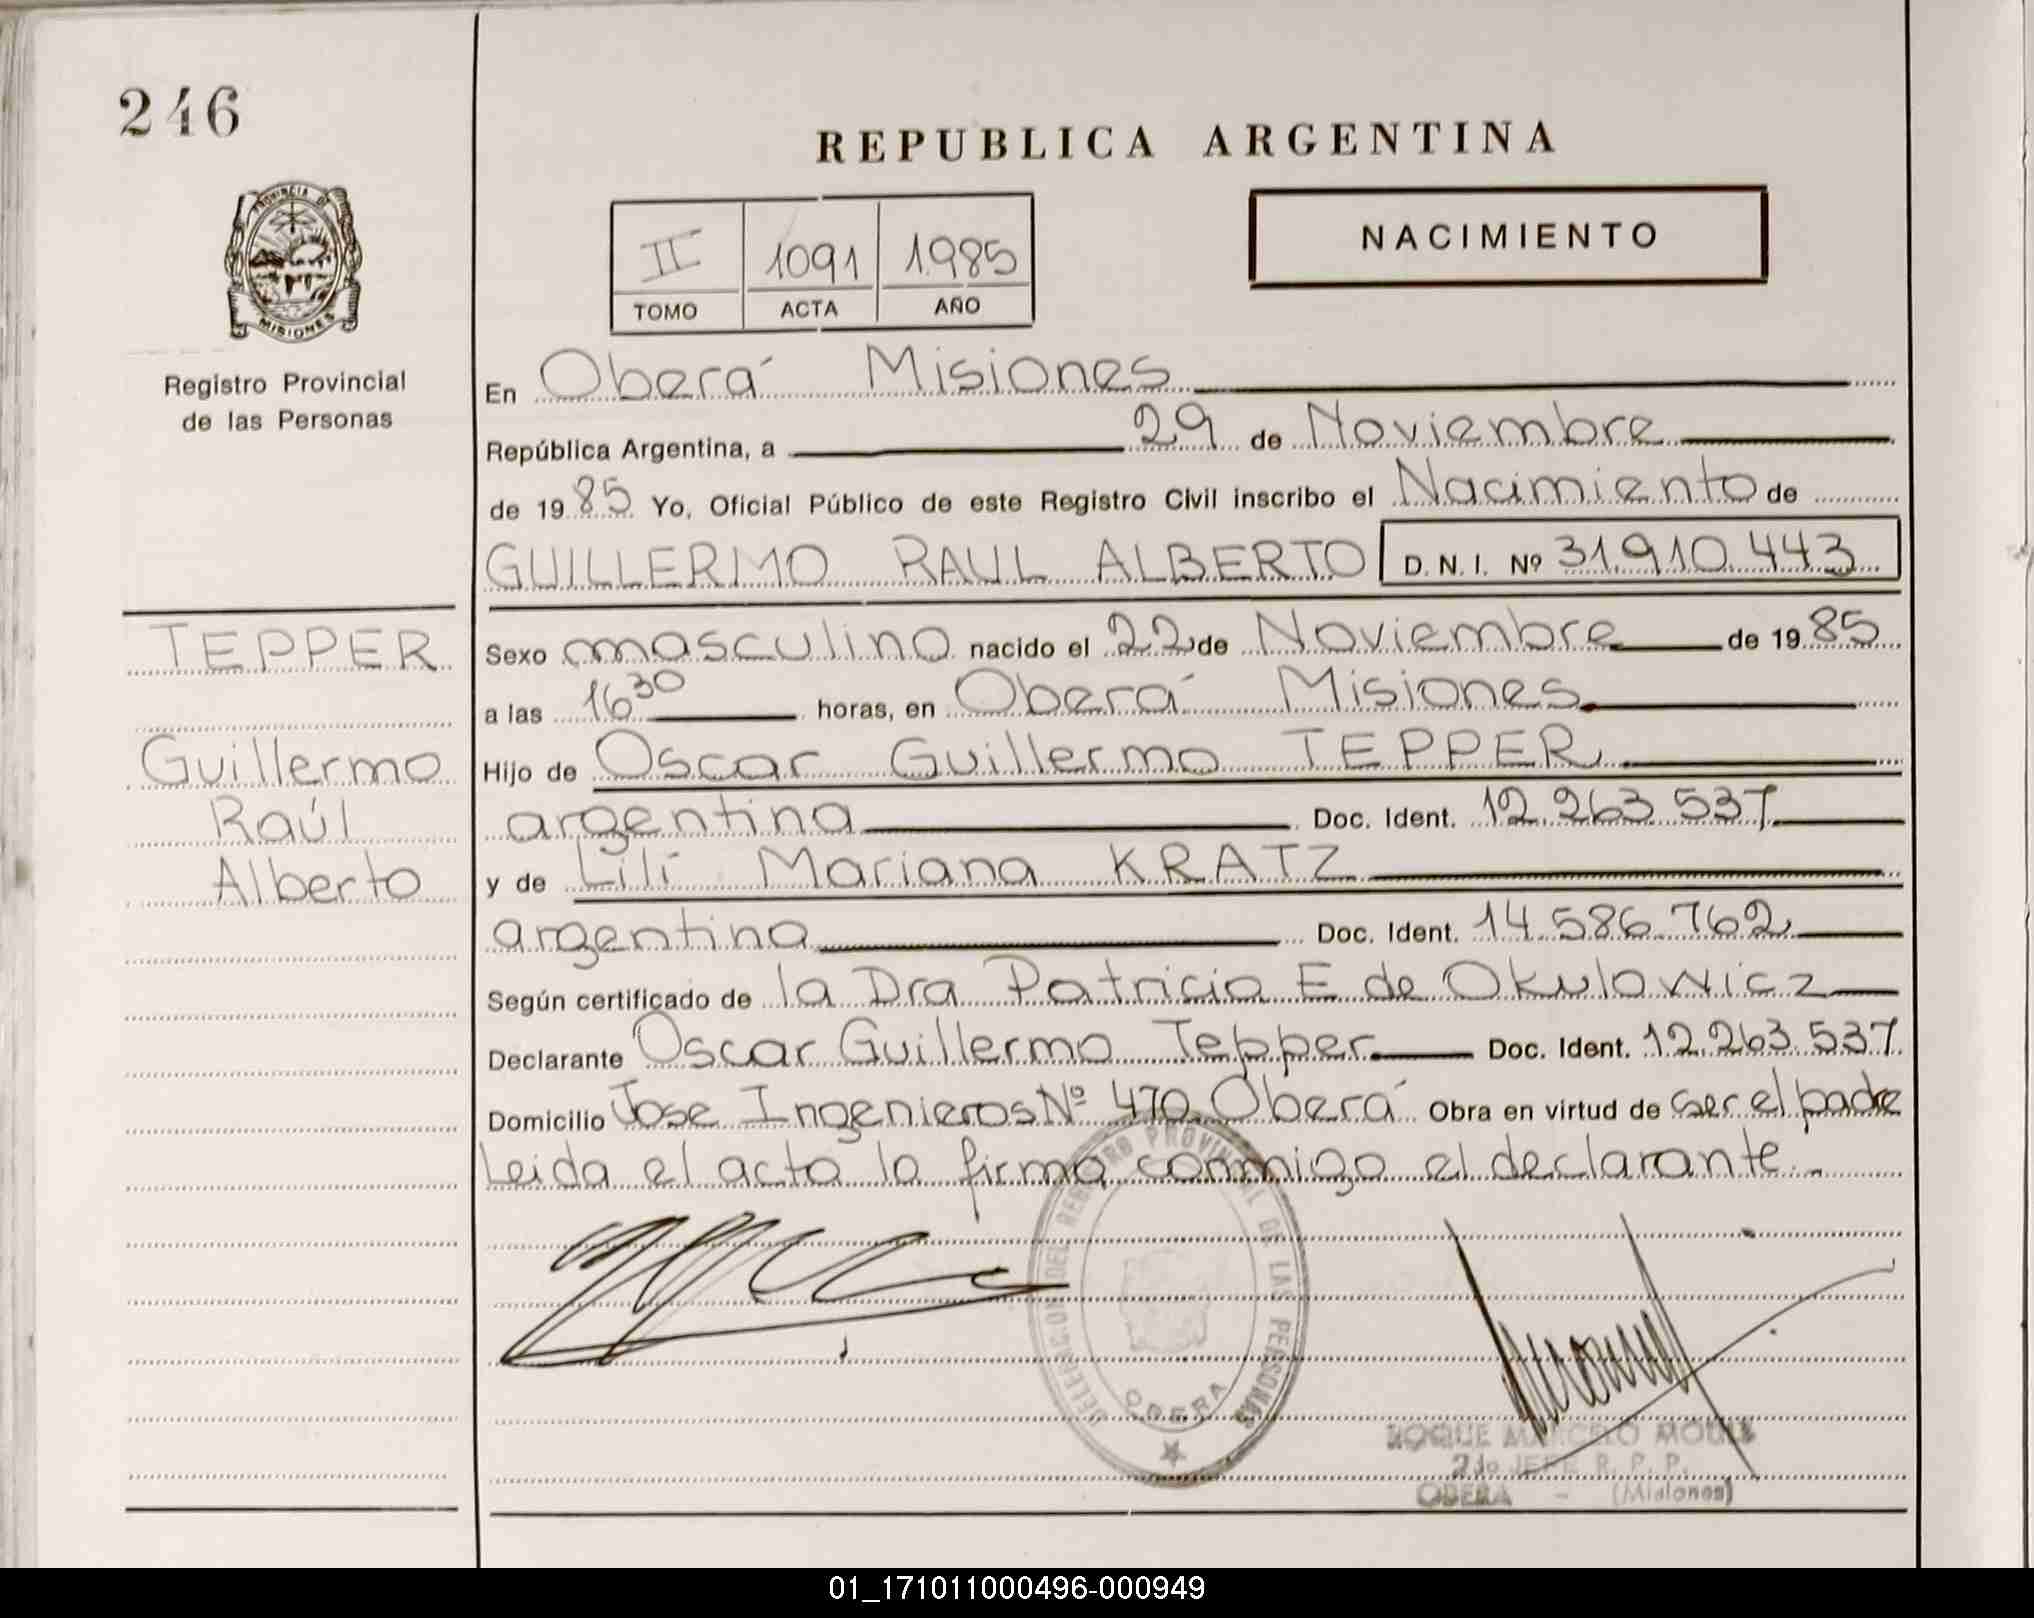 246
REPUBLICA ARGENTINA
PROVINCIA DE
MISIONES
II 1091 1985
TOMO ACTA AÑO
NACIMIENTO
Registro Provincial
de las Personas
En Oberá Misiones
República Argentina, a 29 de Noviembre
de 1985 Yo, Oficial Público de este Registro Civil inscribo el Nacimiento de
GUILLERMO RAUL ALBERTO D.N.I. Nº 31.910.443
TEPPER
Guillermo
Raúl
Alberto
Sexo masculino nacido el 22 de Noviembre de 1985
a las 16 30 horas, en Oberá Misiones
Hijo de Oscar Guillermo TEPPER
argentina Doc. Ident. 12.263.537
y de Lilí Mariana KRATZ
argentina Doc. Ident. 14.586.762
Según certificado de la Dra Patricia E de Okulowicz
Declarante Oscar Guillermo Tepper Doc. Ident. 12.263.537
Domicilio Jose Ingenieros Nº 470 Oberá Obra en virtud de ser el padre
Leida el acta la firma conmigo el declarante.
DELEGACION DEL REGISTRO PROVINCIAL DE LAS PERSONAS
OBERA
ROQUE MARCELO
2do JEFE R. P. P.
OBERA - (Misiones)
01_171011000496-000949